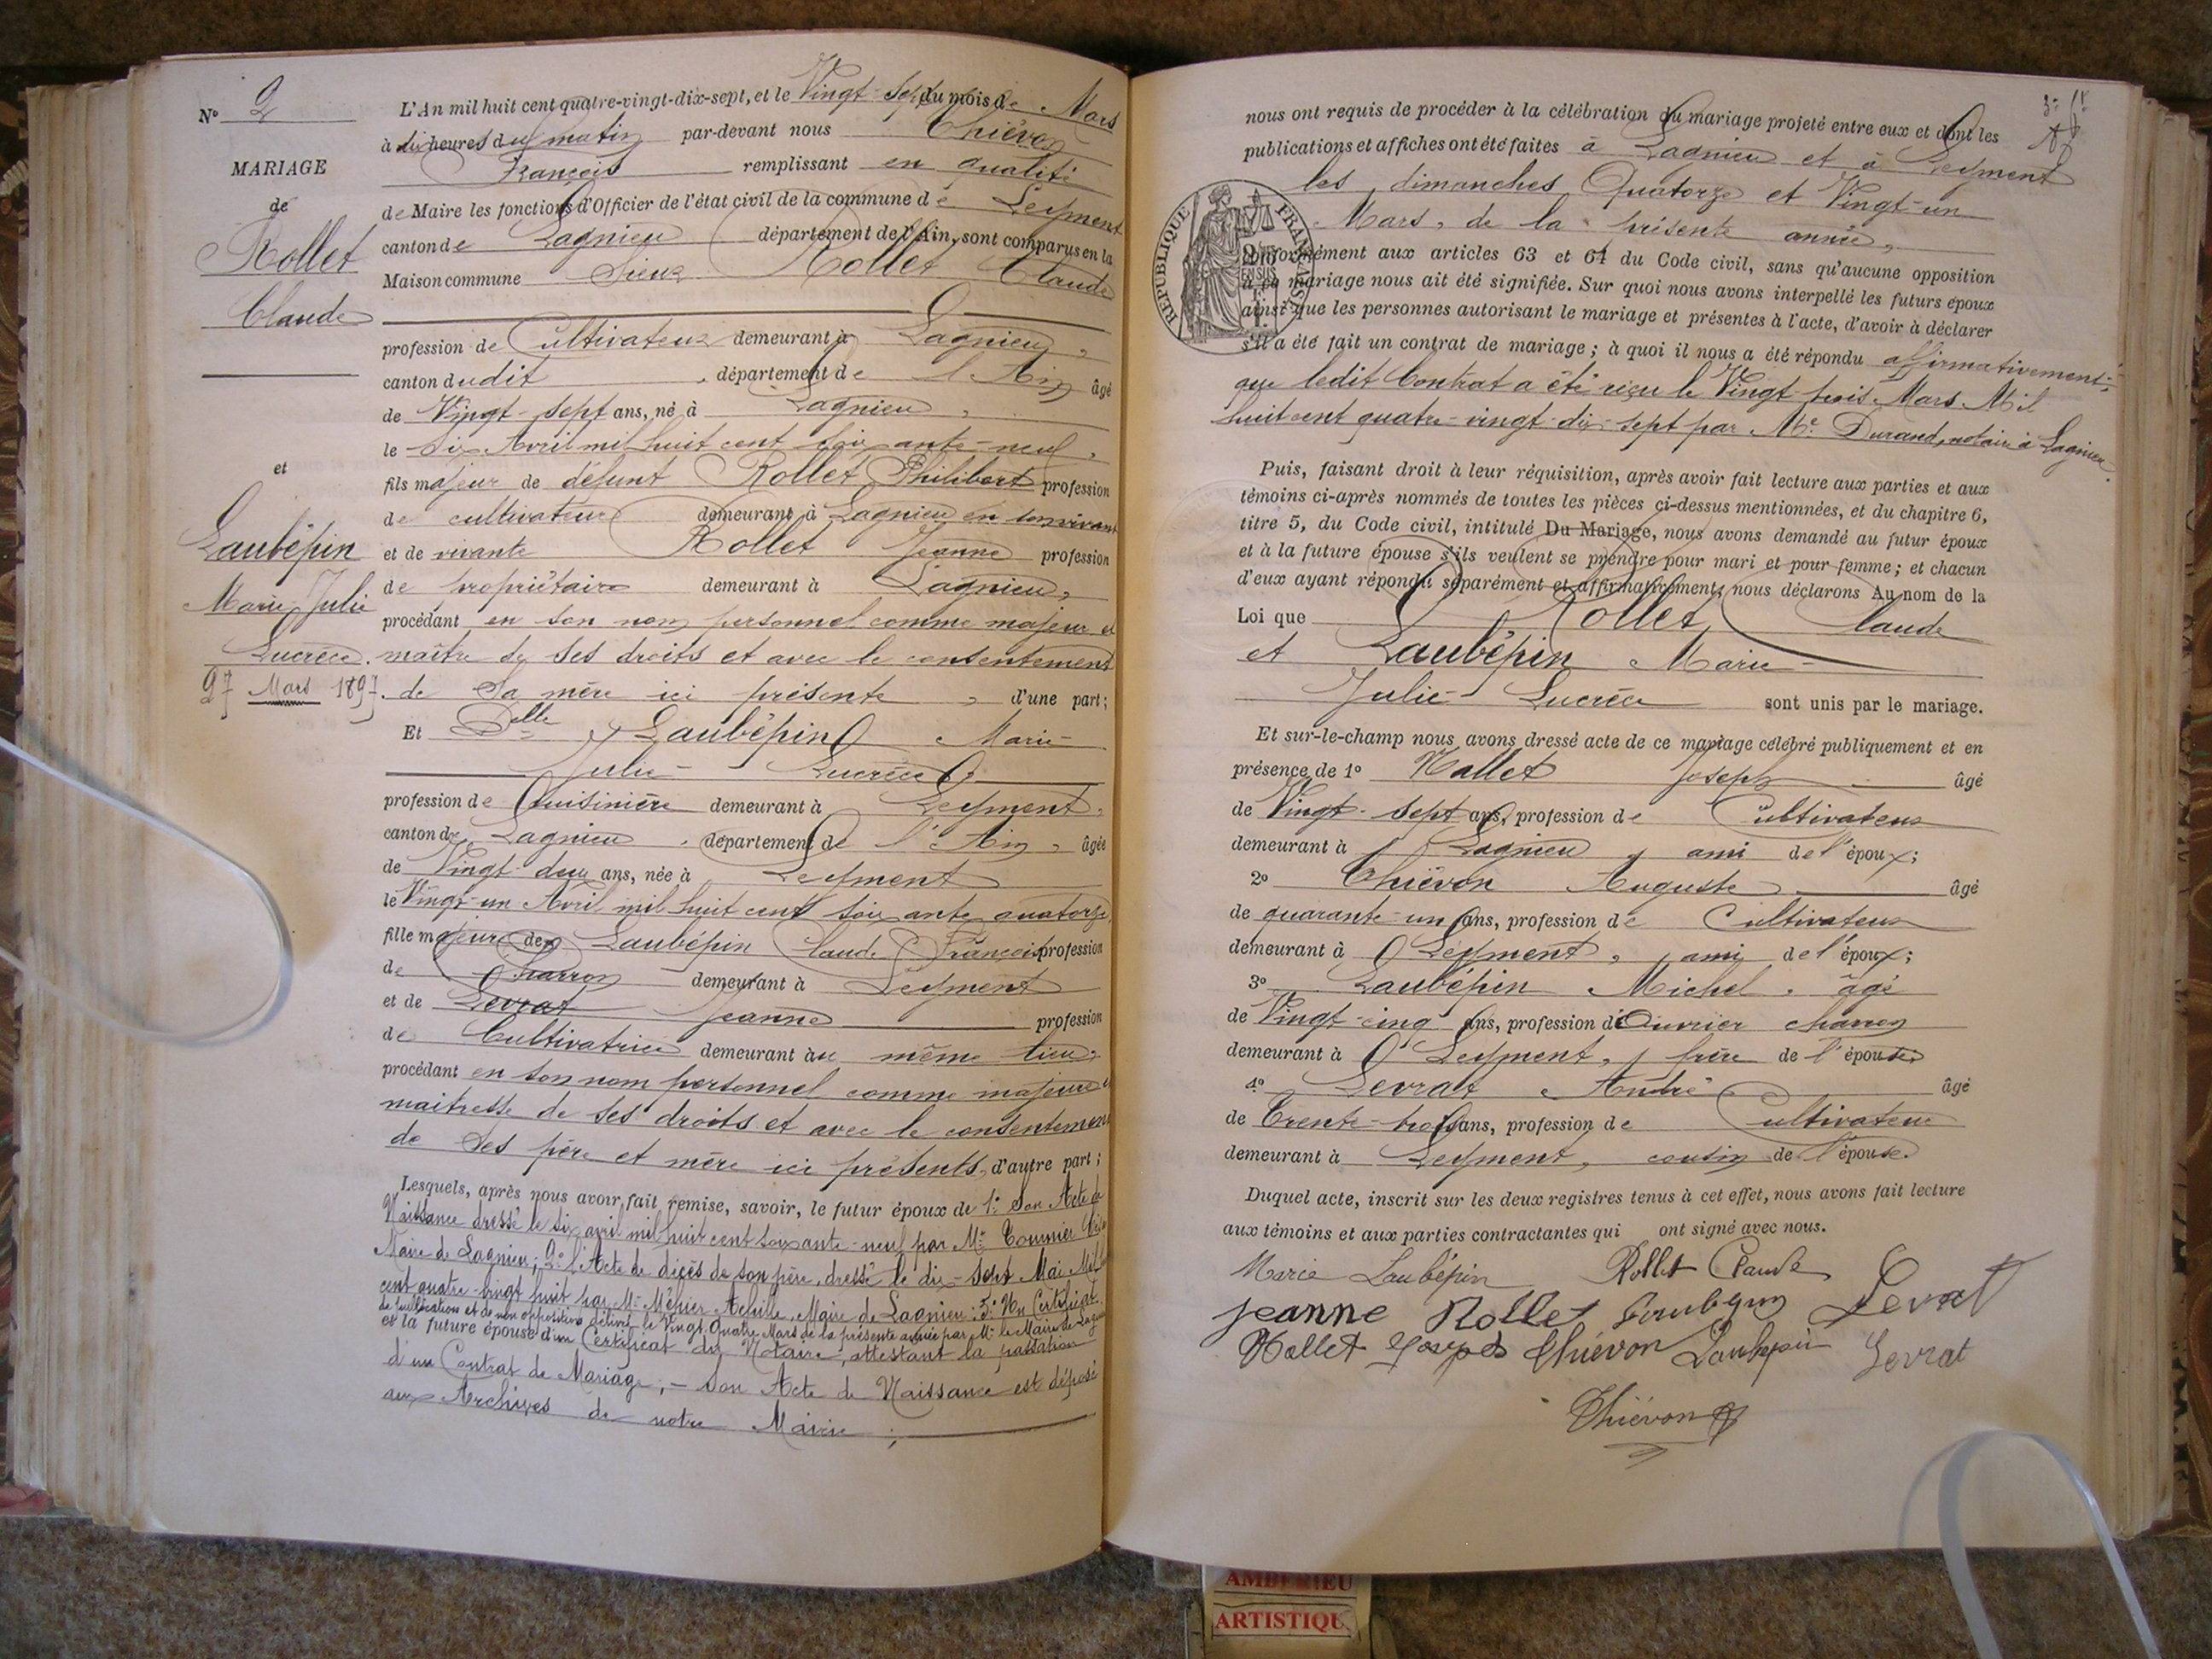 No 2
MARIAGE
de
Rollet
Claude
et
Laubépin
Marie-Julie
Lucrèce.
27 Mars 1897.
L'An mil huit cent quatre-vingt-dix-sept, et le Vingt-Sept du mois de Mars
à dix heures du matin par-devant nous Thiévon
François remplissant en qualité
de Maire les fonctions d'Officier de l'état civil de la commune de Leyment
canton de Lagnieu département de l'Ain, sont comparus en la
Maison commune Sieur Rollet Claude
profession de Cultivateur demeurant à Lagnieu,
canton dudit, département de l'Ain âgé
de Vingt-sept ans, né à Lagnieu,
le Six Avril mil huit cent soixante-neuf,
fils majeur de défunt Rollet Philibert profession
de cultivateur demeurant à Lagnieu en son vivant
et de vivante Rollet Jeanne profession
de propriétaire demeurant à Lagnieu,
procédant en son nom personnel comme majeur et
maître de ses droits et avec le consentement
de Sa mère ici présente, d'une part;
Et Delle Laubépin Marie-
Julie-Lucrèce
profession de Cuisinière demeurant à Leyment,
canton de Lagnieu, département de l'Ain, âgée
de Vingt-deux ans, née à Leyment
le Vingt-un Avril mil huit cent soixante quatorze,
fille majeure de Laubépin Claude François profession
de Charron demeurant à Leyment
et de Levrat Jeanne profession
de Cultivatrice demeurant au même lieu,
procédant en son nom personnel comme majeure et
maitresse de ses droits et avec le consentement
de Ses père et mère ici présents, d'autre part;
Lesquels, après nous avoir fait remise, savoir, le futur époux de 1º Son Acte de
Naissance dressé le six avril mil huit cent soixante-neuf par Mr Tournier
Maire de Lagnieu; 2º l'Acte de décès de son père, dressé le dix-Sept Mai Mil
cent quatre-vingt huit par Mr Méhier Achille, Maire de Lagnieu; 3º Un Certificat
de publication et de non opposition délivré le Vingt Quatre Mars de la présente année par Mr le Maire de Lagnieu
et la future épouse d'un Certificat du Notaire, attestant la passation
d'un Contrat de Mariage; - Son Acte de Naissance est déposé
aux Archives de notre Mairie;
nous ont requis de procéder à la célébration du mariage projeté entre eux et dont les
publications et affiches ont été faites à Lagnieu et à Leyment
les dimanches Quatorze et Vingt-un
Mars, de la présente année,
RÉPUBLIQUE FRANÇAISE
conformément aux articles 63 et 64 du Code civil, sans qu'aucune opposition
à ce mariage nous ait été signifiée. Sur quoi nous avons interpellé les futurs époux
ainsi que les personnes autorisant le mariage et présentes à l'acte, d'avoir à déclarer
s'il a été fait un contrat de mariage; à quoi il nous a été répondu affirmativement;
que ledit Contrat a été reçu le Vingt trois Mars Mil
huit cent quatre-vingt-dix-sept par Me Durand, notaire à Lagnieu.
Puis, faisant droit à leur réquisition, après avoir fait lecture aux parties et aux
témoins ci-après nommés de toutes les pièces ci-dessus mentionnées, et du chapitre 6,
titre 5, du Code civil, intitulé Du Mariage, nous avons demandé au futur époux
et à la future épouse s'ils veulent se prendre pour mari et pour femme; et chacun
d'eux ayant répondu séparément et affirmativement; nous déclarons Au nom de la
Loi que Rollet Claude
et Laubépin Marie-
Julie-Lucrèce sont unis par le mariage.
Et sur-le-champ nous avons dressé acte de ce mariage célébré publiquement et en
présence de 1º Nallet Joseph âgé
de Vingt-sept ans, profession de Cultivateur
demeurant à Lagnieu, ami de l'époux;
2º Thiévon Auguste âgé
de quarante-un ans, profession de Cultivateur
demeurant à Leyment, ami de l'époux;
3º Laubépin Michel, âgé
de Vingt-cinq ans, profession d'Ouvrier charron
demeurant à Leyment, frère de l'épouse
4º Levrat André âgé
de Trente-trois ans, profession de Cultivateur
demeurant à Leyment, cousin de l'épouse.
Duquel acte, inscrit sur les deux registres tenus à cet effet, nous avons fait lecture
aux témoins et aux parties contractantes qui ont signé avec nous.
Marie Laubépin Rollet Claude
jeanne Rollet Loubepin Levrat
Nallet Joseph Thiévon Laubépin Levrat
Thiévon
AMBERIEU
ARTISTIQU